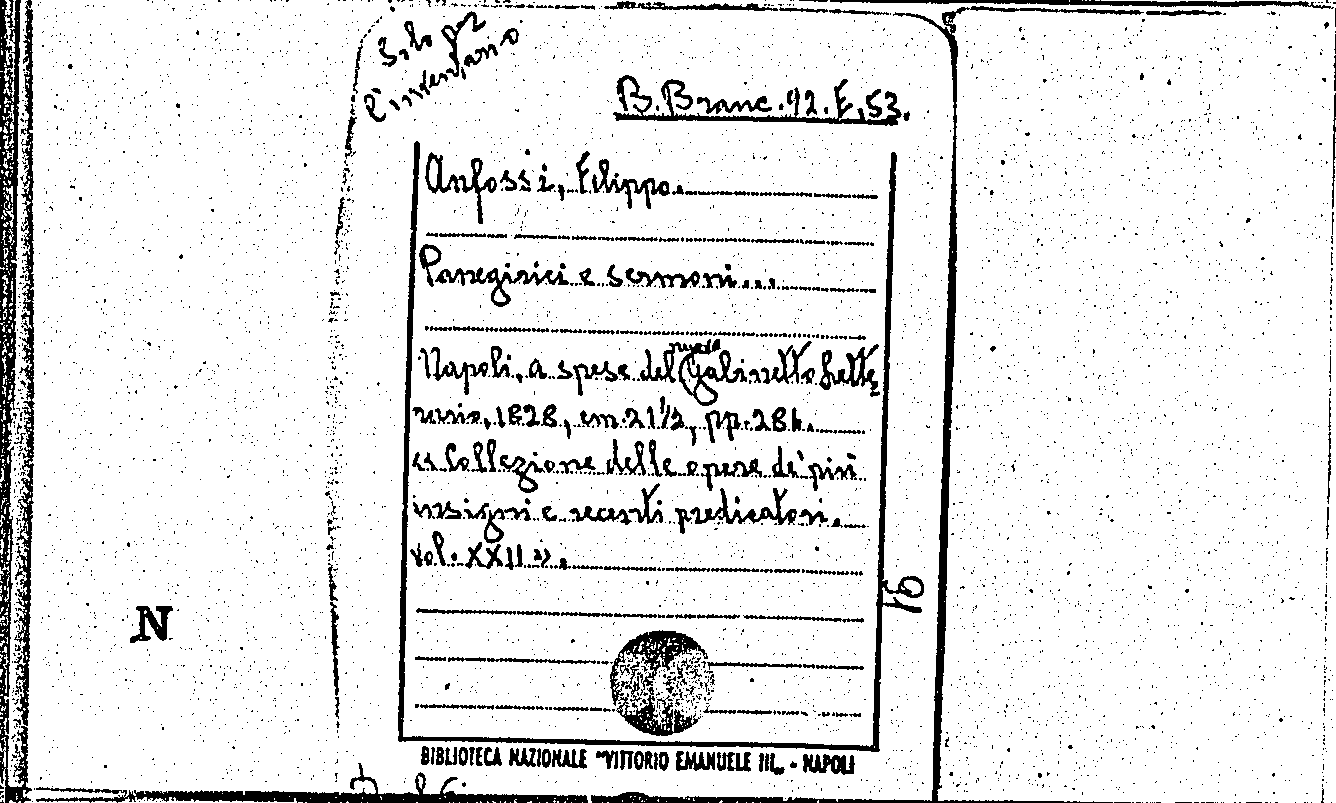 Solo pr
l'inventario
B. Branc. 92. F, 53.
Anfossi, Filippo.
Panegirici e sermoni...
Napoli, a spese del nuovo Gabinetto Lette
rario, 1828, cm. 21½, pp. 286.
« Collezione delle opere de' più
insigni e recenti predicatori.
vol. XXII ».
16
N
BIBLIOTECA NAZIONALE "VITTORIO EMANUELE III„ - NAPOLI